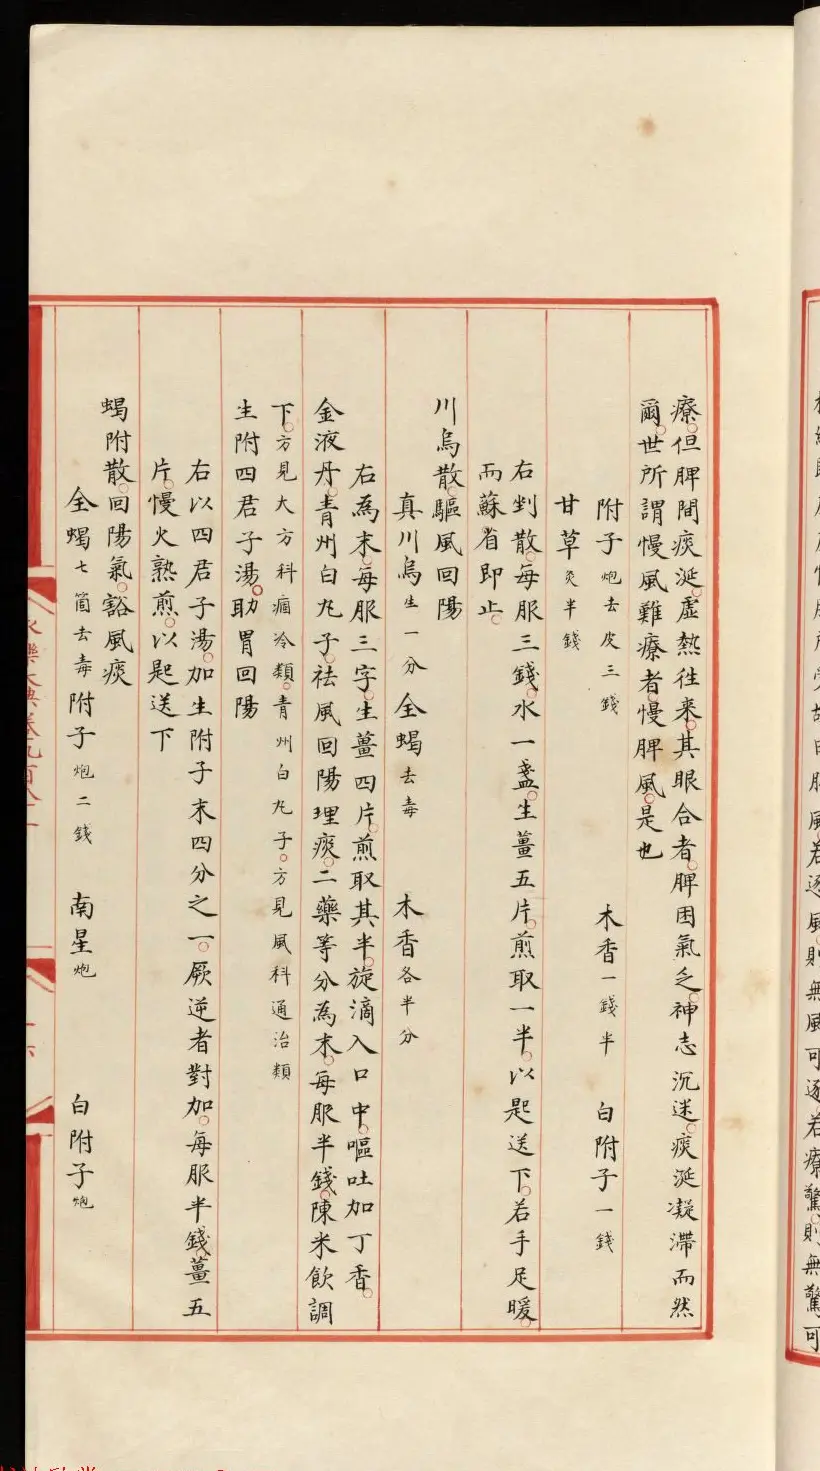 療。但脾間痰涎。虛熱往來。其眼合者。脾困氣乏。神志沉迷。痰涎凝滯而然
爾。世所謂慢風難療者。慢脾風。是也
附子炮去皮三錢 木香一錢半 白附子一錢
甘草炙半錢
右剉散。每服三錢。水一盞。生薑五片。煎取一半。以匙送下。若手足暖
而蘇省即止。
川烏散。驅風回陽
真川烏生一分 全蝎去毒 木香各半分
右為末。每服三字。生薑四片。煎取其半。旋滴入口中。嘔吐加丁香。
金液丹。青州白丸子。祛風回陽理痰。二藥等分為末。每服半錢。陳米飲調
下。方見大方科痼冷類。青州白丸子。方見風科通治類
生附四君子湯。助胃回陽
右以四君子湯。加生附子末四分之一。厥逆者對加。每服半錢。薑五
片。慢火熟煎。以匙送下
蝎附散。回陽氣。豁風痰
全蝎七箇去毒 附子炮二錢 南星炮 白附子炮